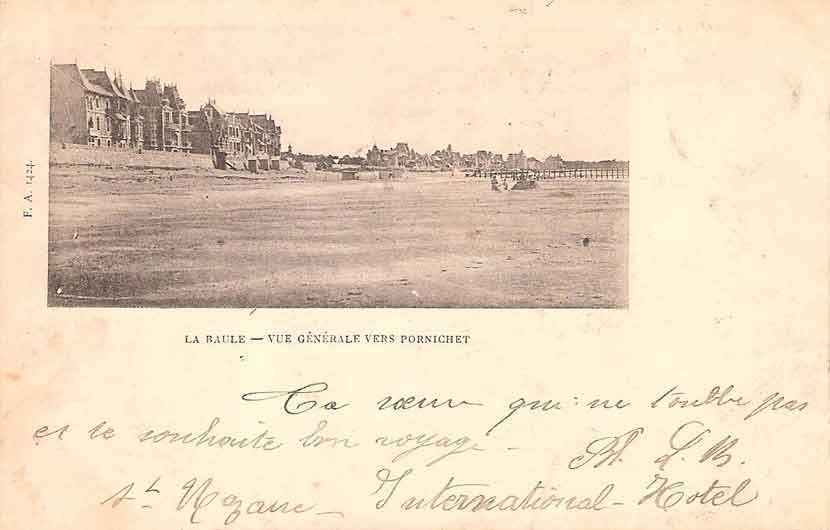 F. A. 1424.
LA BAULE — VUE GÉNÉRALE VERS PORNICHET
Ta sœur qui ne t'oublie pas
et te souhaite bon voyage
St Nazaire International-Hotel